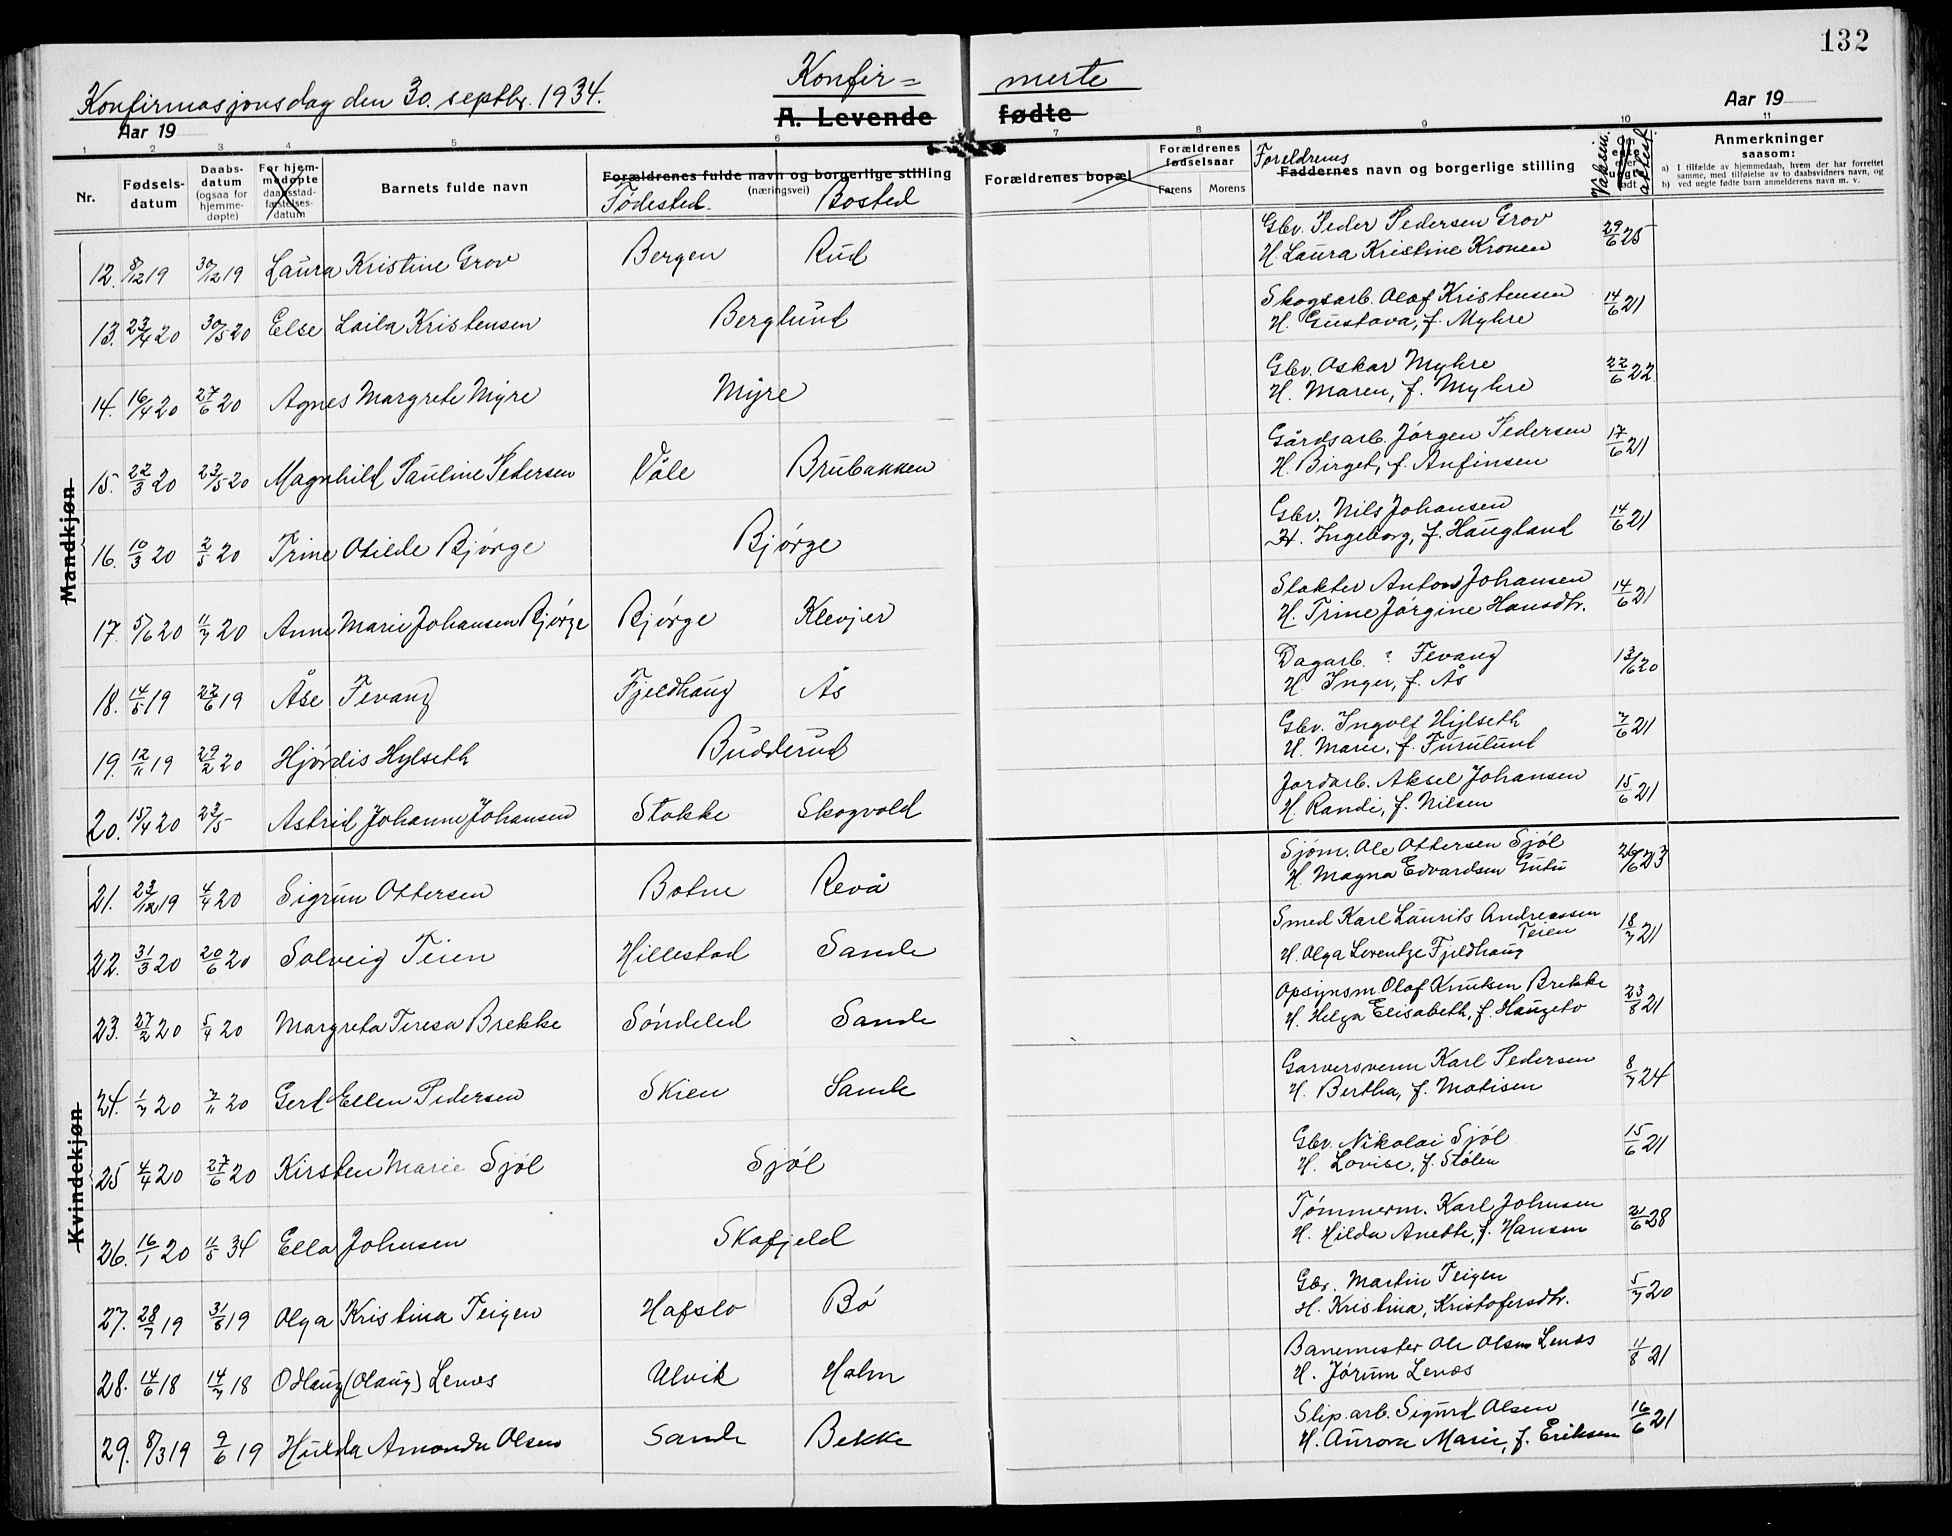 132
Konfirmasjonsdag den 30. septbr. 1934.
Konfir= merte
A. Levende fødte
Aar 19
Aar 19
1 2 3 4 5 6 7 8 9 10 11
Nr.
Fødsels-datum
Daabs-datum (ogsaa for hjemme-døpte)
For hjem-medøpte daabsstad-fæstelses-datum
Barnets fulde navn
Forældrenes fulde navn og borgerlige stilling (næringsvei)
Fødested. Bosted
Forældrenes bopæl
Forældrenes fødselsaar
Farens Morens
Foreldrenes
Faddernes navn og borgerlige stilling
Vaksin. attest
Anmerkninger
saasom:
a) I tilfælde av hjemmedaab, hvem der har forrettet samme, med tilføielse av to daabsvidners navn, og
b) ved uegte fødte barn anmelderens navn m. v.
Mandkjøn
12. 8/12 19 30/12 19 Laura Kristine Grov Bergen Rud Gbr. Peder Pedersen Grov 29/6 25
H. Laura Kristine Kronen
13. 23/4 20 30/5 20 Else Laila Kristensen Berglund Skogsarb. Olaf Kristensen 14/6 21
H. Gustava, f. Myhre
14. 16/4 20 27/6 20 Agnes Margrete Myre Myre Gbr. Oskar Myhre 22/6 22
H. Maren, f. Myhre
15. 22/3 20 23/5 20 Magnhild Pauline Pedersen Våle Brubakken Gårdsarb. Jørgen Pedersen 17/6 21
H. Birget, f. Anfinsen
16. 10/3 20 2/5 20 Trine Otilde Bjørge Bjørge Gbr. Nils Johansen 14/6 21
H. Ingeborg, f. Haugland
17. 5/6 20 11/7 20 Anne Marie Johansen Bjørge Bjørge Klevjer Slakter Anton Johansen 14/6 21
H. Trine Jørgine Hansdtr.
18. 14/5 19 22/6 19 Åse Fevang Fjeldhaug Ås Dagarb. ? Fevang 13/6 20
H. Inger, f. Ås
19. 12/11 19 29/2 20 Hjørdis Hylseth Budderud Gbr. Ingolf Hylseth 7/6 21
H. Marie, f. Furulund
20. 15/4 20 23/5 Astrid Johanne Johansen Stokke Skogvold Jordarb. Aksel Johansen 15/6 21
H. Randi, f. Nilsen
Kvindekjøn
21. 23/12 19 4/4 20 Sigrun Ottersen Botne Revå Sjøm. Ole Ottersen Sjøl 26/6 23
H. Magna Edvardsen Gutu
22. 31/3 20 20/6 20 Solveig Teien Hillestad Sande Smed Karl Laurits Andreassen Teien 18/7 21
H. Olga Lorentze Fjeldhaug
23. 27/2 20 5/4 20 Margreta Teresa Brekke Søndeled Sande Opsynsm. Olaf Knutsen Brekke 23/8 21
H. Helga Elisabeth, f. Haugeto
24. 1/7 20 7/11 20 Gerd Ellen Pedersen Skien Sande Garversvenn Karl Pedersen 8/7 24
H. Bertha, f. Matisen
25 4/4 20 27/6 20 Kirsten Marie Sjøl Sjøl Gbr. Nikolai Sjøl 15/6 21
H. Lovise, f. Stølen
26. 16/1 20 11/5 34 Ella Johnsen Skafjeld Tømmerm. Karl Johnsen 21/6 28
H. Hilda Anette, f. Hansen
27. 28/7 19 31/8 19 Olga Kristina Teigen Hafslo Bø Gbr. Martin Teigen 5/7 20
H. Kristina, Kristofersdtr.
28. 14/6 18 14/7 18 Odlaug (Olaug) Lenæs Ulvik Holm Banemester Ole Olsen Lenæs 11/8 21
H. Jørun Lenæs
29. 8/3 19 9/6 19 Hulda Amanda Olsen Sande Bekke Slip. arb. Sigurd Olsen 16/6 21
H. Aurora Marie, f. Eriksen